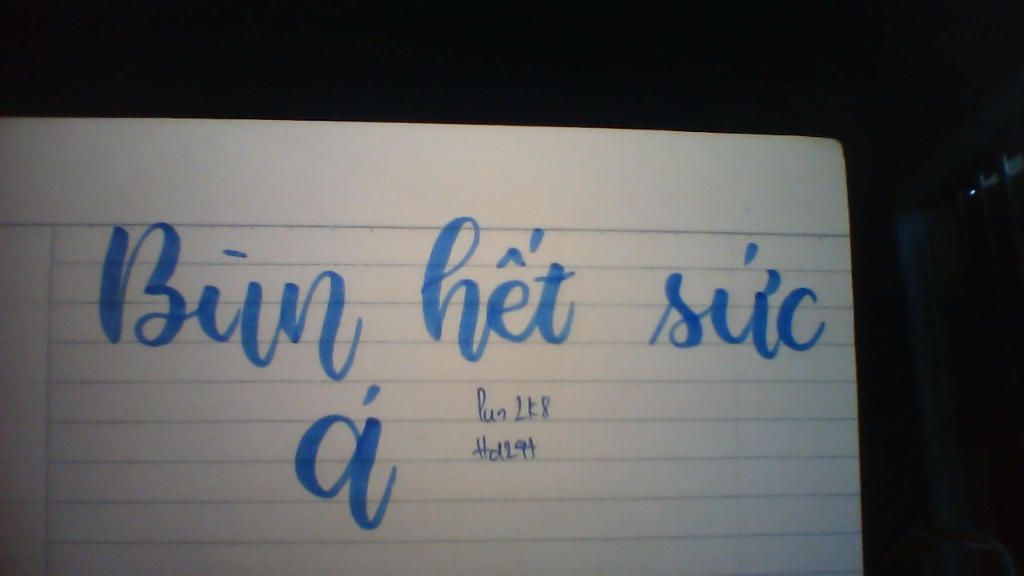 Bùn hết sức
á
Pun 2k8